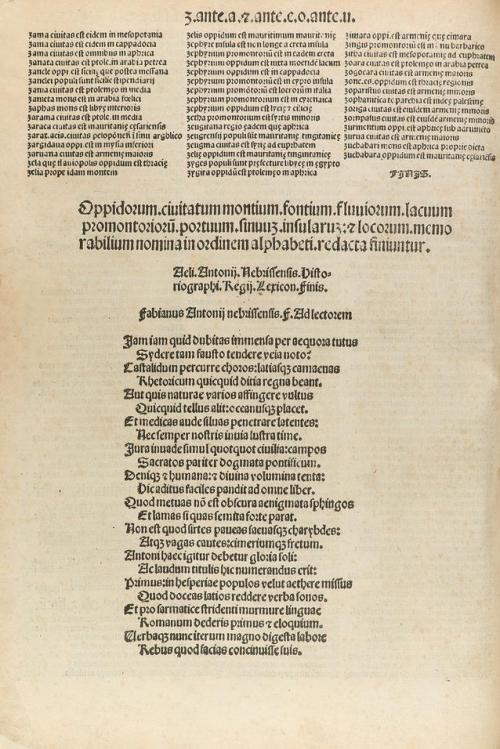 z.ante.a.⁊.ante.e.o.ante.u.
zama ciuitas est eidem in mesopotania
zama ciuitas est eidem in cappadocia
zama ciuitas est omnibus in aphrica
zanata ciuitas est ptole.in arabia petrea
zancle oppi. est sicilię que postea messana
zanclei populi sunt sicilię stipendiarij
zama ciuitas est ptolemęo in media
zameta mons est in arabia foelici
zaphas mons est libyę interioris
zarama ciuitas est ptole.in media
zaraca ciuitas est mauritanię cęsariensis
zarax.acis.ciuitas peloponēsi i sinu argolico
zargidaua oppi est in mysia inferiori
zaruana ciuitas est armenię maioris
zela que flauiopolis oppidum est thracię
zelia prope idam montem
zelis oppidum est mauritinium mauritanię
zephyrę insula est non longe a creta insula
zephyrium promontoriū est in eadem creta
zephyrium oppidum est iuxta moeotidē lacum
zephyrium oppidum est in cappadocia
zephyrium oppidum est in cilicia
zephyrium promontoriū est locrorum italia
zephyrium promontorium est in cyrenaica
zephyrium oppidum est
zerba promontorium est syrtis minoris
zeugmana regio eadem que aphrica
zeugensij populisūt mauritanię tingitanię
zeugma ciuitas est syrię ad euphratem
zelij oppidum est mauritanię tingitanię
zyges populi sunt prefecturę libyę in egypto
zygira oppidū est ptolemęo in aphrica
zimara oppi.est armenię que cimara
zingis promontoriū est in sinu barbarico
zitha ciuitas est mesopotamię ad euphratem
zoara ciuitas est ptolemęo in arabia petrea
zogocara ciuitas est armenię maioris
zone.es.oppidum est thracię regionis
zoparistus ciuitas est armenię minoris
zophanica
zoriga ciuitas est eiusdem armenię minoris
zoropassus ciuitas est eiusdē armenię minoris
zurmentum oppi.est aphricę sub adrumeto
zurua ciuitas est armenię maioris
zuchabari mons est aphricę proprie dicta
zuchabara oppidum est mauritanię cęsariēsis
FINIS.
Oppidorum.ciuitatum montium.fontium.fluuiorum.lacuum
promontoriorū.portuum.sinuuz.insularuz:⁊ locorum.memo
rabilium nomina in ordinem alphabeti.redacta finiuntur.
Aeli.Antonij.Nebrissensis.Histo-
riographi.Regij.Lexicon.Finis.
Fabianus Antonij nebrissensis.F.Ad lectorem
Jam iam quid dubitas immensa per aequora tutus
Sydere tam fausto tendere vela noto?
Castalidum percurre choros:latiasqȝ camaenas
Rhetoricum quicquid ditia regna beant.
Aut quis naturae varios affingere vultus
Quicquid tellus alit:oceanusqȝ placet.
Et medicas aude siluas penetrare latentes:
Nec semper nostris inuia lustra time.
Jura inuade simul quotquot ciuilia:campos
Sacratos pariter dogmata pontificum.
Deniqȝ ⁊ humana:⁊ diuina volumina tenta:
Hic aditus faciles pandit ad omne liber.
Quod metuas nō est obscura aenigmata sphingos
Et lamas si quas semita forte parat.
Non est quod sirtes paueas saeuasqȝ charybdes:
Atqȝ vagas cautes:cimeriumqȝ fretum.
Antoni haec igitur debetur gloria soli:
Ac laudum titulis hic numerandus erit:
Primus:in hesperiae populos velut aethere missus
Quod doceas latios reddere verba sonos.
Et pro sarmatice stridenti murmure linguae
Romanum dederis primus ⁊ eloquium.
Uerbaqȝ nunc iterum magno digesta labore
Rebus quod facias concinuisse suis.